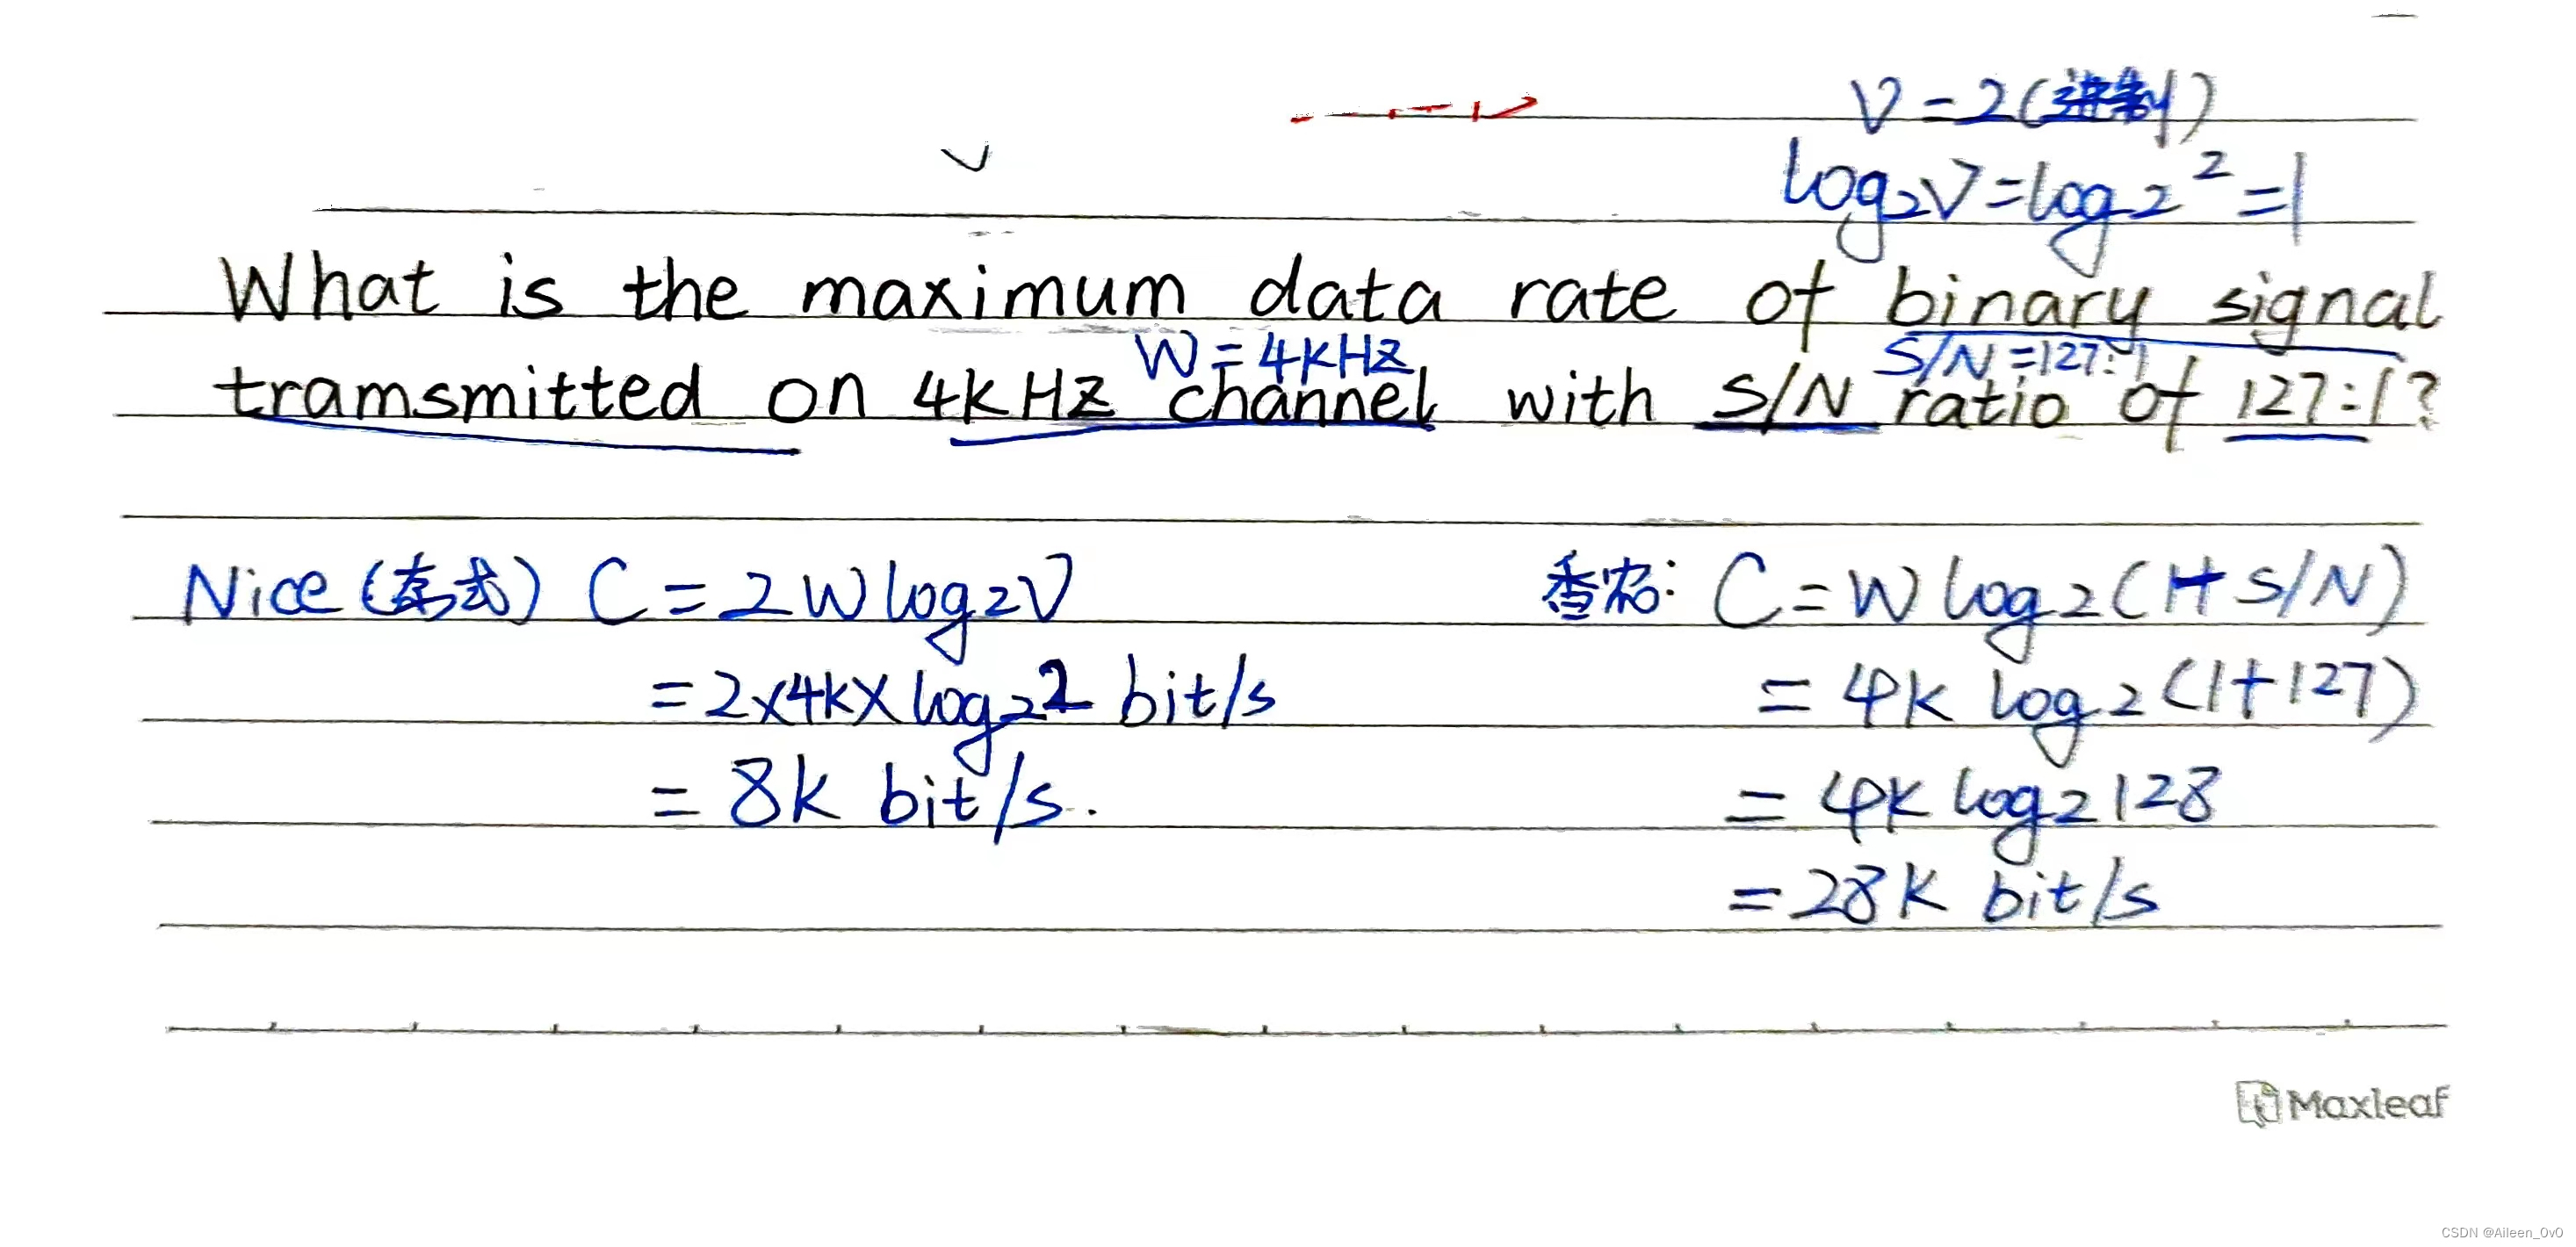 V=2(进制)
log₂V=log₂²=1
What is the maximum data rate of binary signal
W=4KHZ S/N=127:1
tramsmitted on 4KHZ channel with S/N ratio of 127:1?
Nice(奈式) C=2Wlog₂V
=2×4K×log₂2 bit/s
=8K bit/s.
香农: C=Wlog₂(1+S/N)
=4K log₂(1+127)
=4K log₂128
=28K bit/s
Maxleaf
CSDN @Aileen_0v0